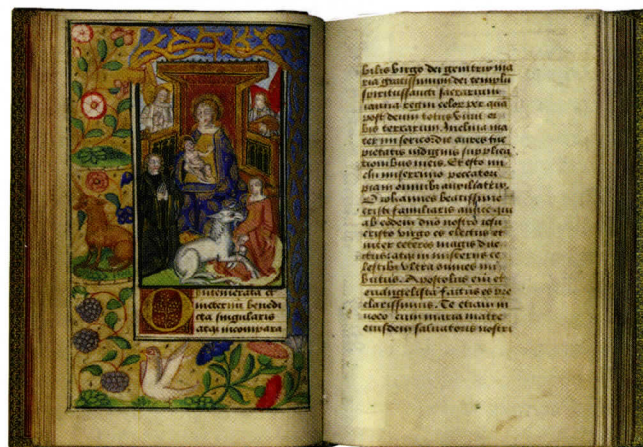 O intemerata et
ineternū benedi
cta singularis
atqz incompara
bilis virgo dei genitrix ma
ria gratissimum dei templū
spiritussancti sacrarium
ianua regni celoɽ per quā
post deum totus viuit or
bis terrarum. Inclina ma
ter misericordie aures tue
pietatis indignis supplica
tionibus meis. Et esto mi
chi miserrimo peccatori
pia in omnibꝰ auxiliatrix.
O iohannes beatissime
cristi familiaris amice qui
ab eodem dn̄o nostro ihū
cristo virgo es electus et
inter ceteros magis dile
ctus atqz in misterus ce
lestibꝰ vltra omnes im
butus. Apostolus eni et
euangelista factus es pre
clarissimus. Te etiam in
uoco cum maria matre
eiusdem saluatoris nostri